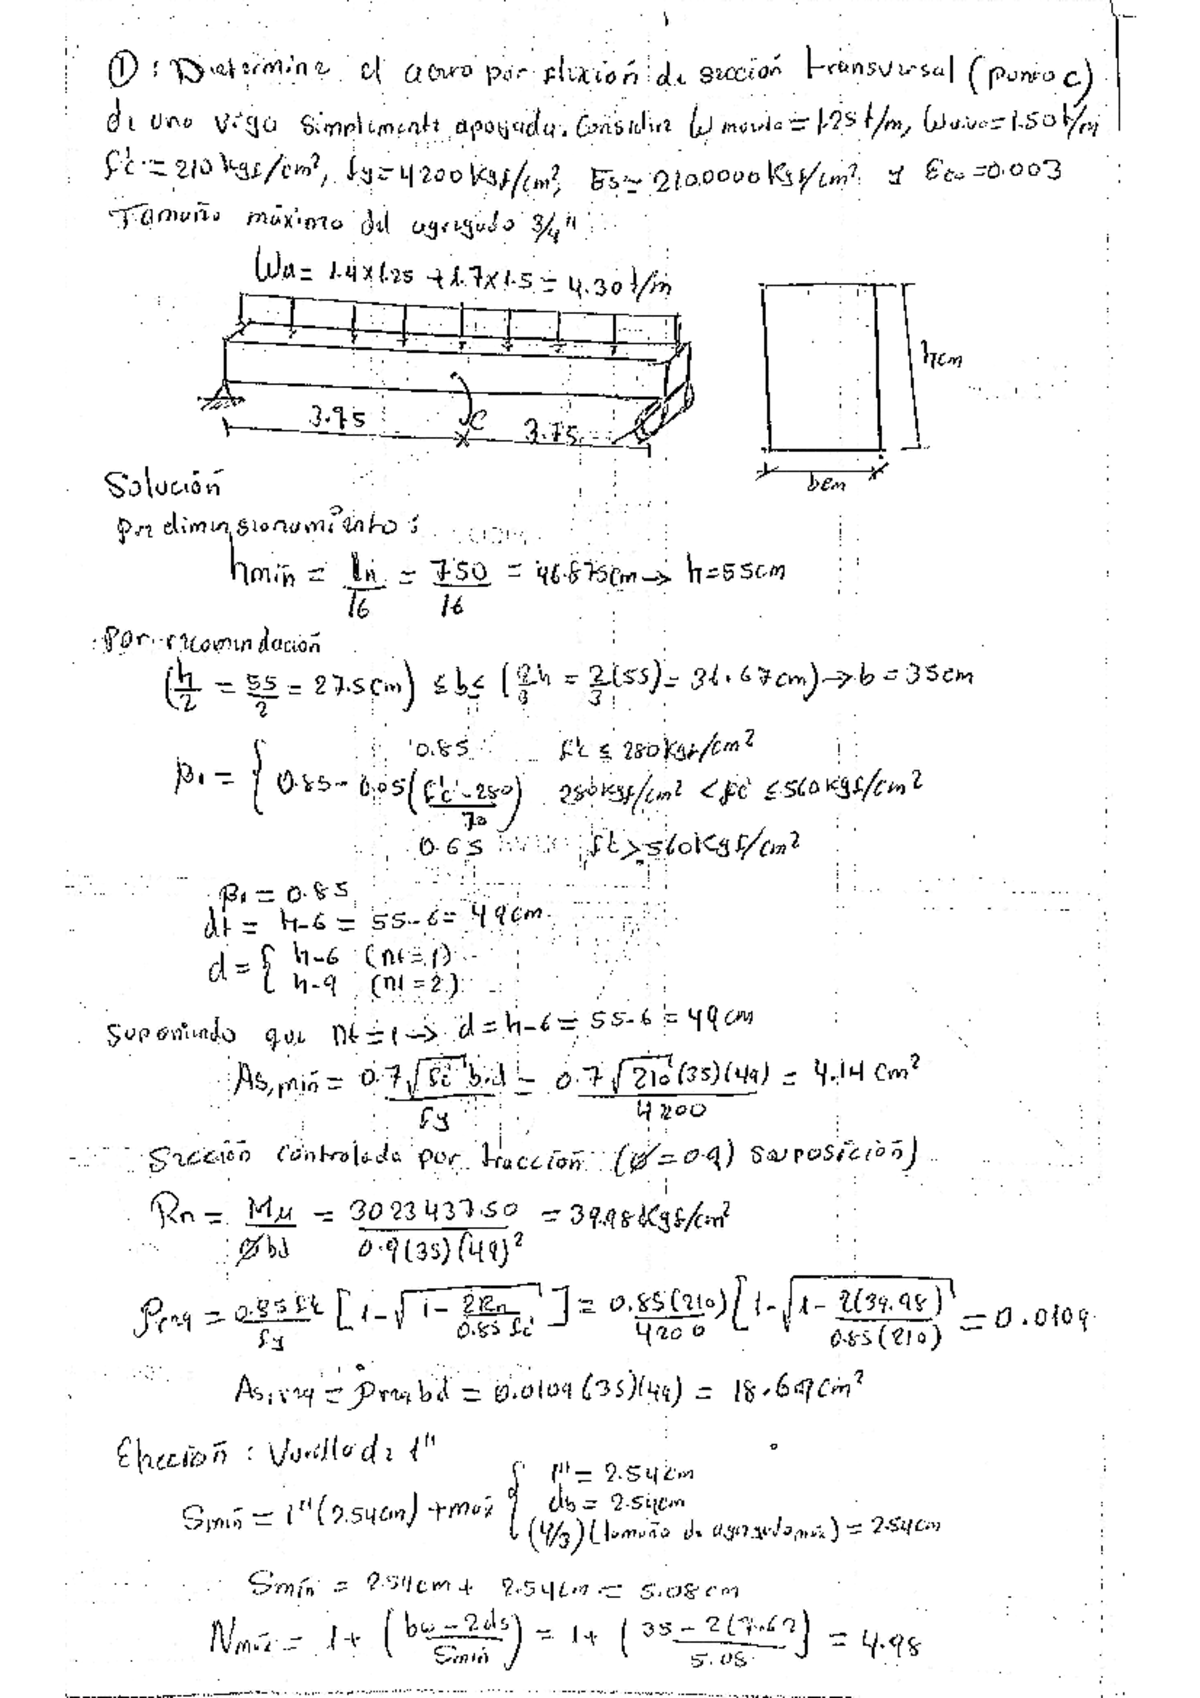 ①: Determine el acero por flexión de sección transversal (punto C)
de una viga simplemente apoyada. Considere W muerta = 1.25 t/m, Wviva = 1.50 t/m
f'c = 210 kgf/cm², fy = 4200 kgf/cm², Es = 2100000 Kgf/cm² y Ecu = 0.003
Tamaño máximo del agregado 3/4"
Wu = 1.4 x 1.25 + 1.7 x 1.5 = 4.30 t/m
h cm
3.75 C 3.75
b cm
Solución
predimensionamiento:
hmín = ln/16 = 750/16 = 46.875cm → h = 55cm
Por recomendación
(h/2 = 55/2 = 27.5cm) ≤ b ≤ (2h/3 = 2/3(55) = 36.67cm) → b = 35cm
β1 = { 0.85 f'c ≤ 280 kgf/cm²
0.85 - 0.05(f'c - 280/70) 280 kgf/cm² < f'c ≤ 560 kgf/cm²
0.65 f'c > 560 Kgf/cm²
β1 = 0.85
dt = h-6 = 55-6 = 49cm
d = { h-6 (nt = 1)
h-9 (nt = 2)
Suponiendo que nt = 1 → d = h-6 = 55-6 = 49cm
As,mín = 0.7√f'c b.d/fy = 0.7√210 (35)(49)/4200 = 4.14 cm²
Sección controlada por tracción (Ø = 0.9) suposición)
Rn = Mu/Øbd = 3023437.50/0.9(35)(49)² = 39.98 Kgf/cm²
ρreq = 0.85 f'c/fy [1-√1 - 2Rn/0.85 f'c] = 0.85(210)/4200 [1-√1 - 2(39.98)/0.85(210)] = 0.0109
As,req = ρreq bd = 0.0109 (35)(49) = 18.69cm²
Elección: Varilla de 1"
Smín = 1"(2.54cm) + máx { 1" = 2.54cm
db = 2.54cm
(4/3)(tamaño de agregado máx) = 2.54cm
Smín = 2.54cm + 2.54cm = 5.08cm
Nmáx = 1 + (bw - 2ds/Smín) = 1 + (35 - 2(7.62)/5.08) = 4.98